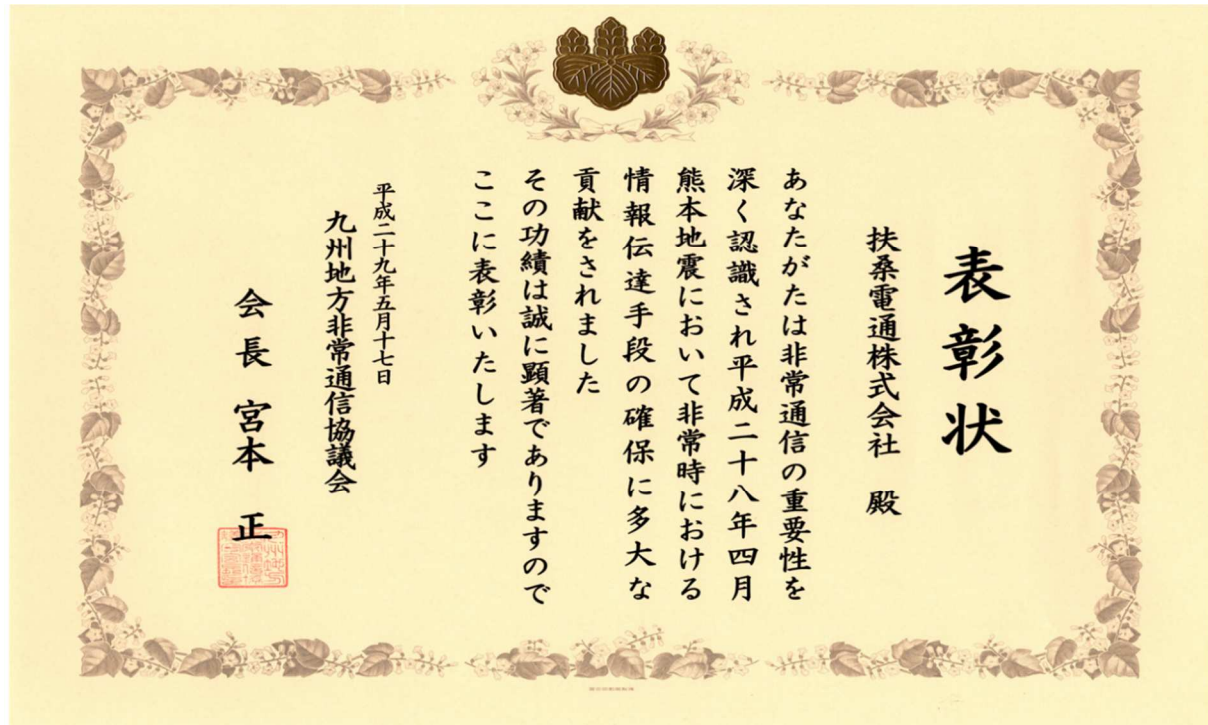 表彰状
扶桑電通株式会社 殿
あなたがたは非常通信の重要性を
深く認識され平成二十八年四月
熊本地震において非常時における
情報伝達手段の確保に多大な
貢献をされました
その功績は誠に顕著でありますので
ここに表彰いたします
平成二十九年五月十七日
九州地方非常通信協議会
会長 宮本 正